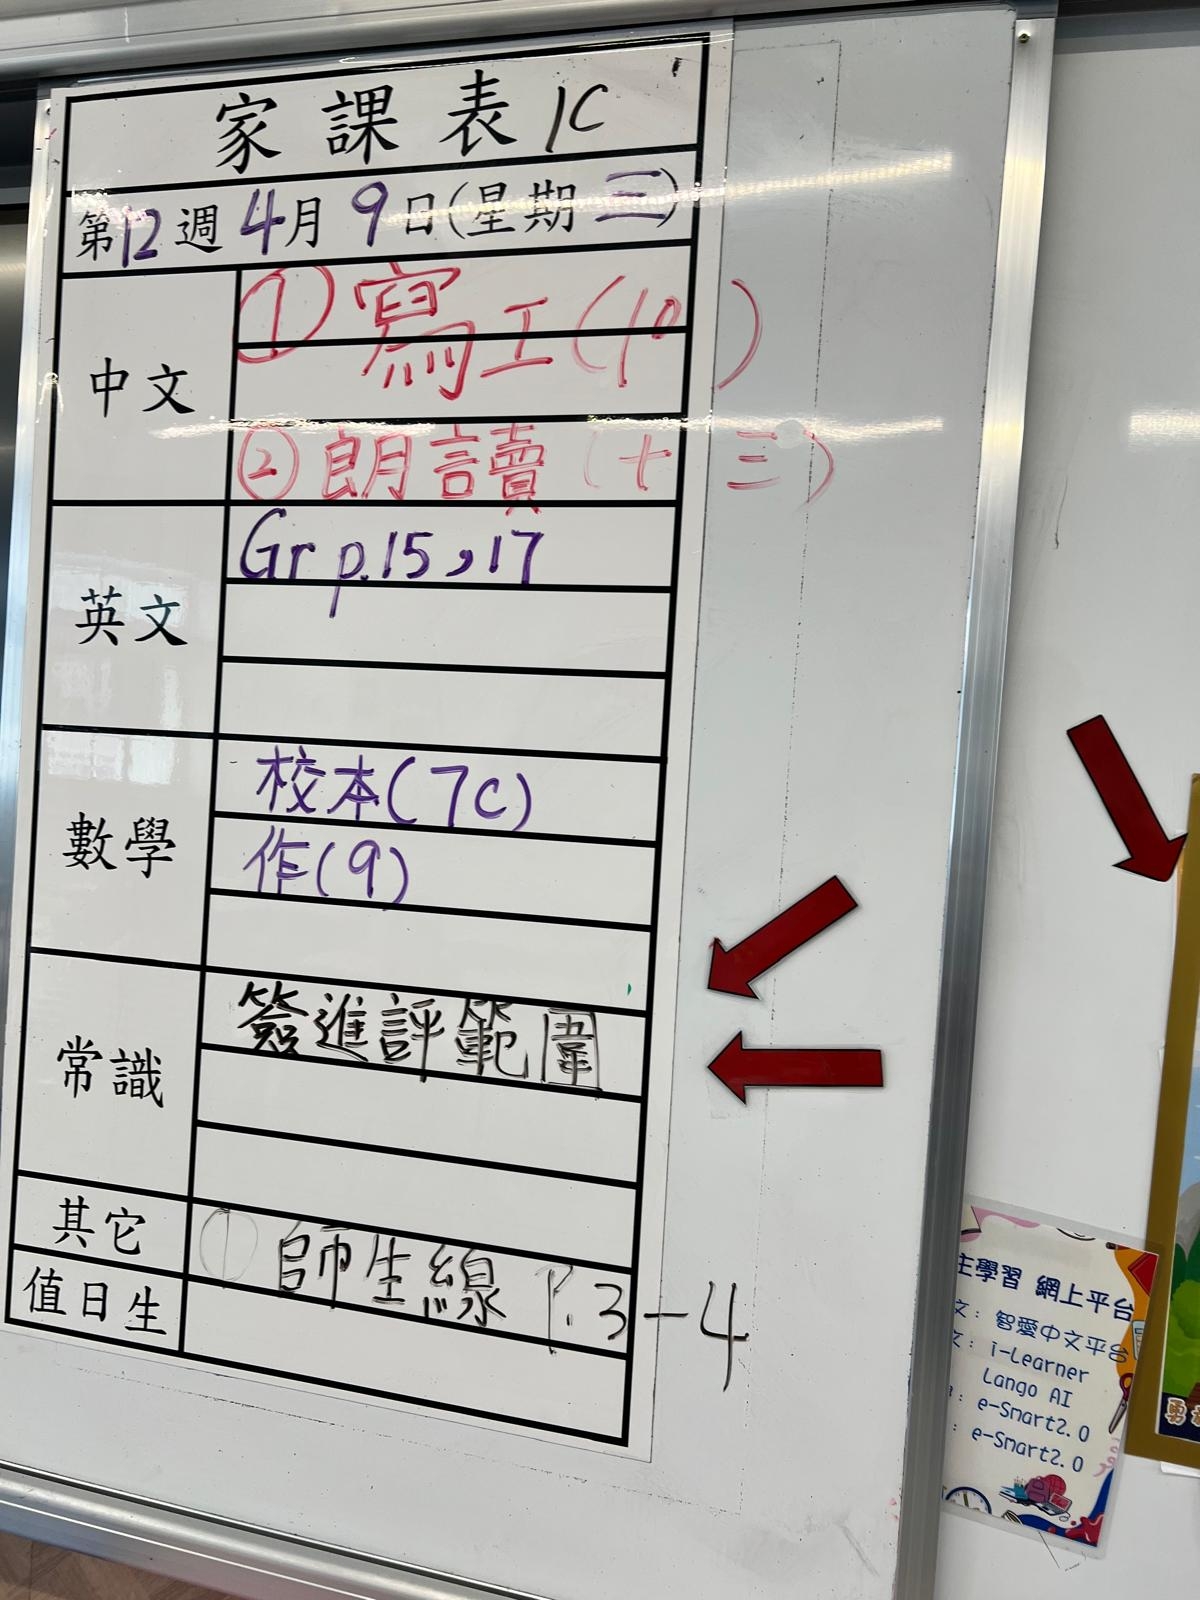 家課表 1C
第12週 4月9日(星期三)
中文
①寫工(10)
②朗讀(十三)
英文
Gr p.15,17
數學
校本(7C)
作(9)
常識
簽進評範圍
其它
① 師生線 P.3-4
值日生
主學習 網上平台
文：智愛中文平台
文：i-Learner
Lango AI
：e-Smart2.0
：e-Smart2.0